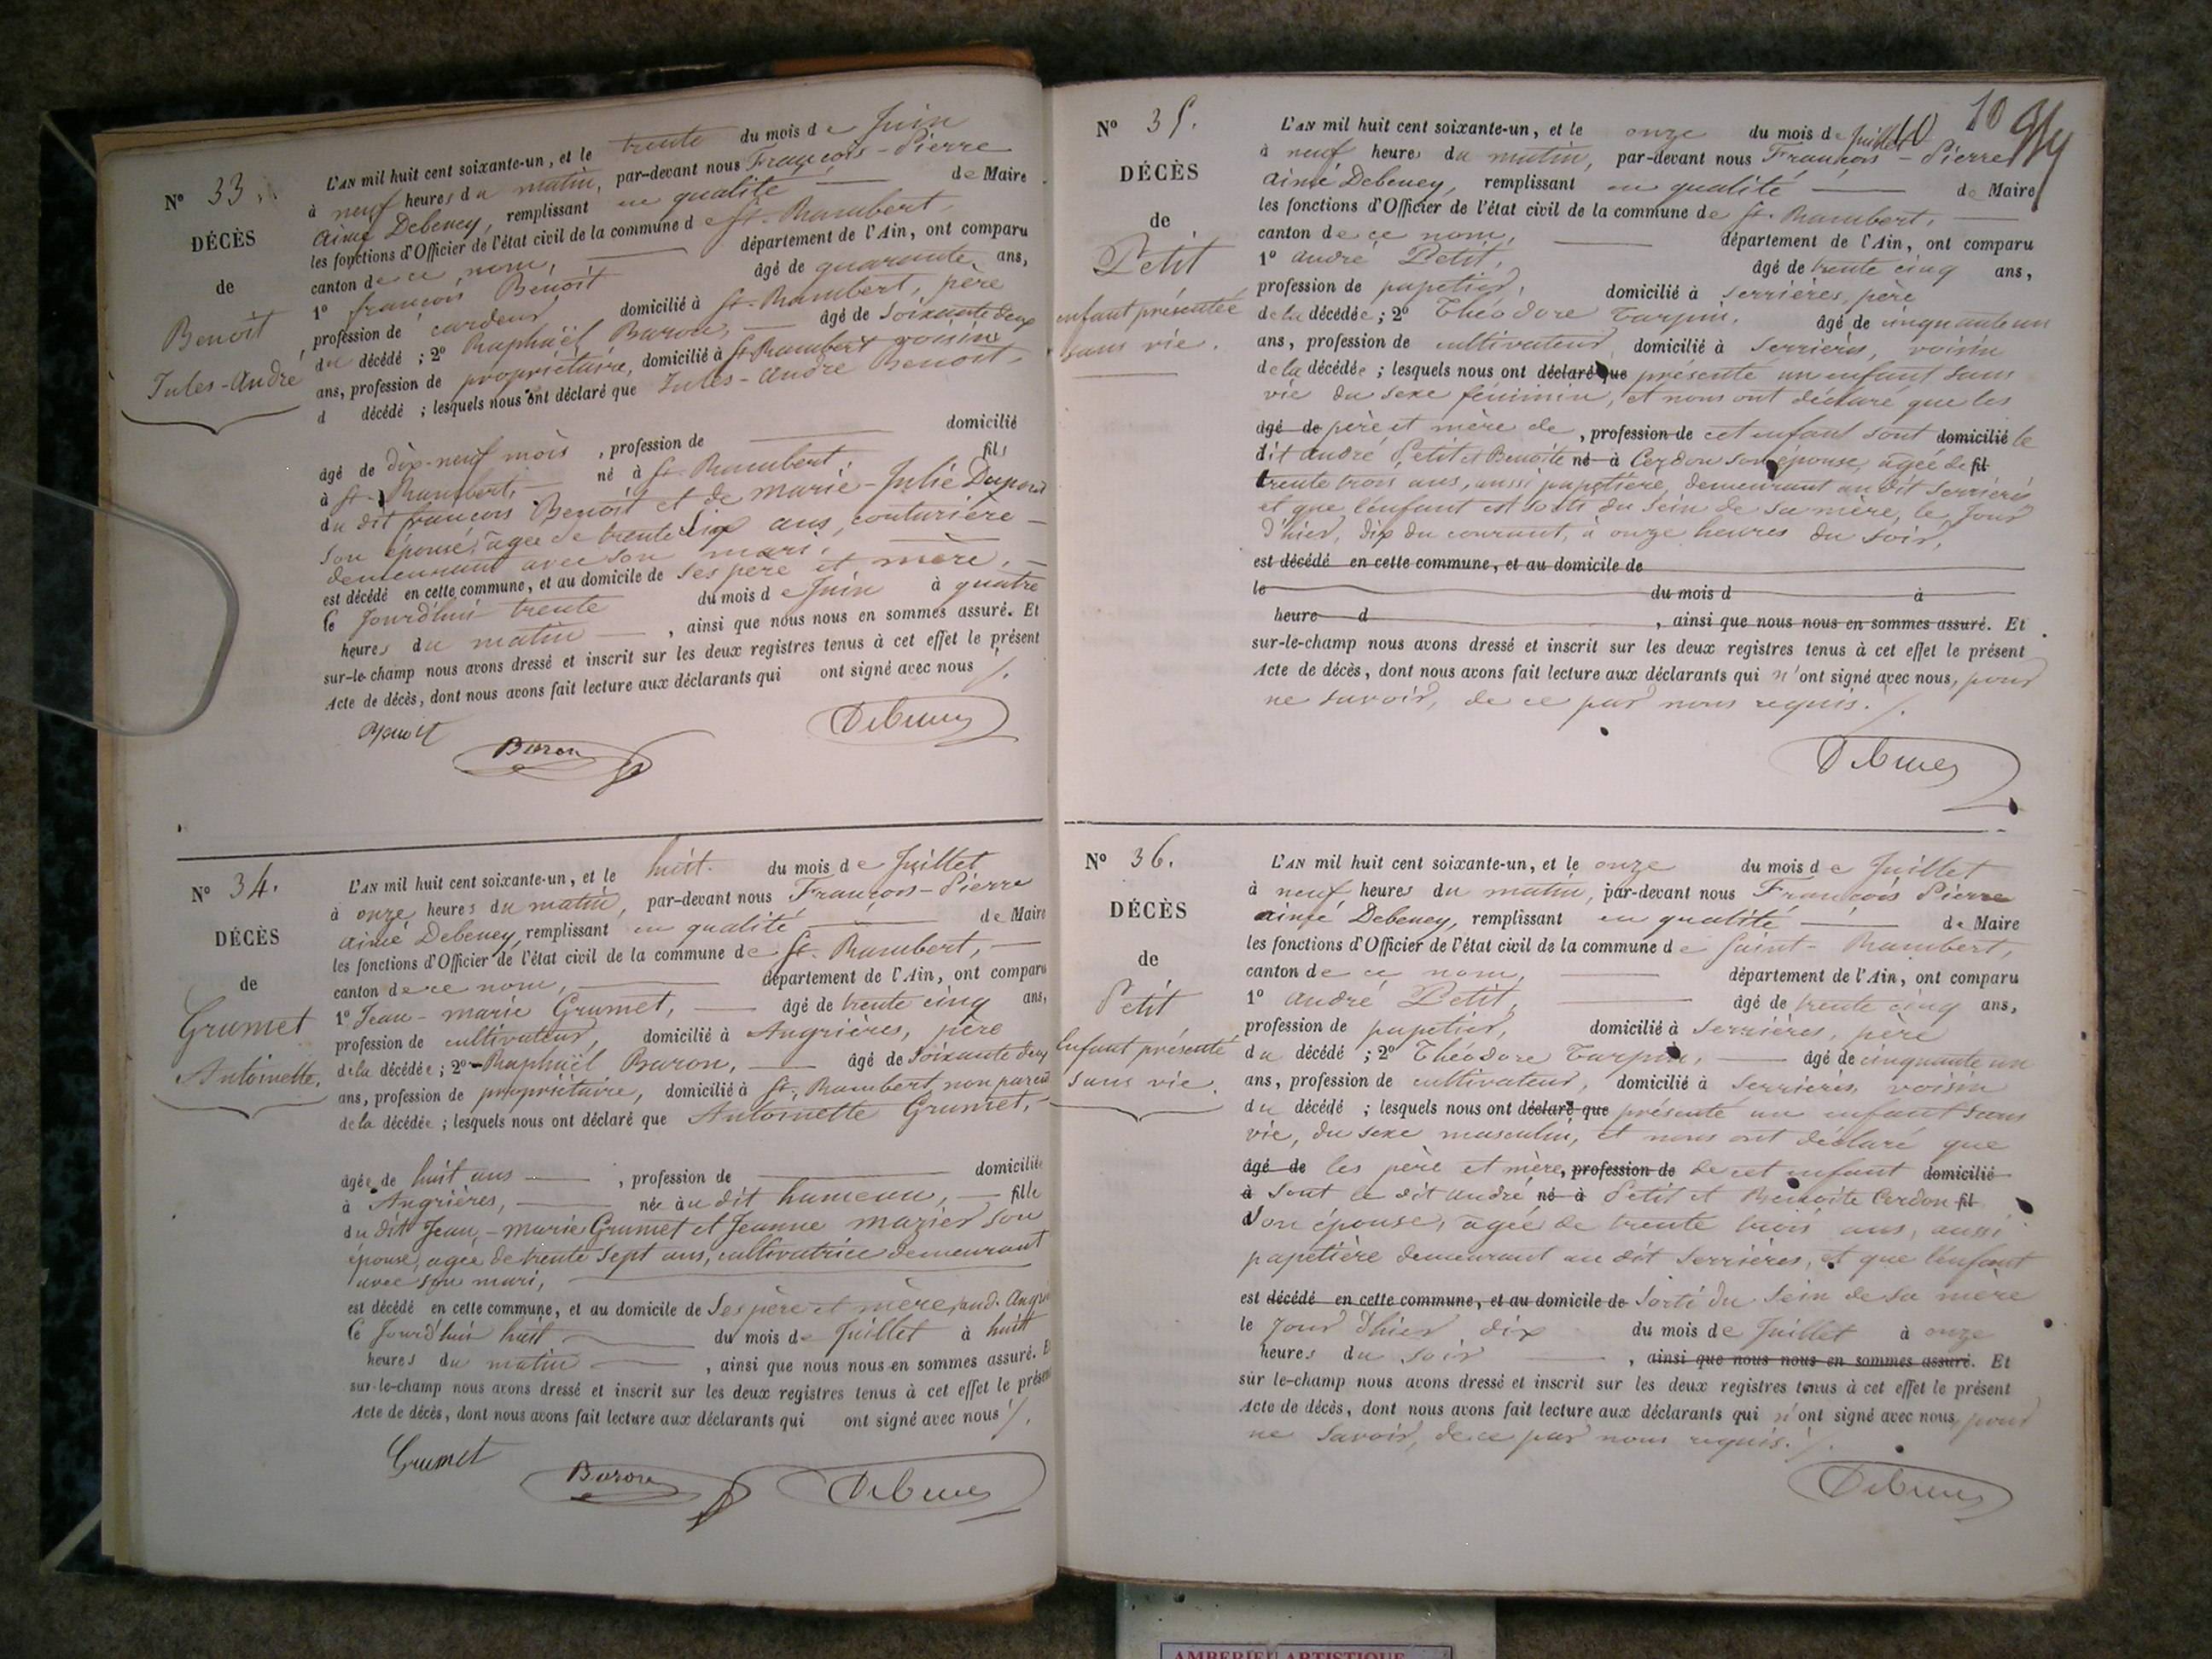 N° 33.
DÉCÈS
de
Benoît
Jules-André
L'AN mil huit cent soixante-un, et le trente du mois de Juin
à neuf heures du matin, par-devant nous François-Pierre
aimé Debeney, remplissant en qualité de Maire
les fonctions d'Officier de l'état civil de la commune de St. Rambert,
canton de ce nom, département de l'Ain, ont comparu
1° françois Benoît âgé de quarante ans,
profession de cardeur domicilié à St. Rambert, père
du décédé ; 2° Raphaël Baron, âgé de Soixante deux
ans, profession de propriétaire, domicilié à St. Rambert voisin
d décédé ; lesquels nous ont déclaré que Jules-andré Benoît,
âgé de dix-neuf mois , profession de domicilié
à St. Rambert, né à St. Rambert fils
du dit françois Benoît et de marie-Julie Dupont
son épouse, agée de trente six ans, couturière
demeurant avec son mari,
est décédé en cette commune, et au domicile de ses père et mère,
le Jourd'hui trente du mois de Juin à quatre
heures du matin , ainsi que nous nous en sommes assuré. Et
sur-le-champ nous avons dressé et inscrit sur les deux registres tenus à cet effet le présent
Acte de décès, dont nous avons fait lecture aux déclarants qui ont signé avec nous /.
Benoit
Baron
Debeney
N° 34.
DÉCÈS
de
Grumet
Antoinette,
L'AN mil huit cent soixante-un, et le huit du mois de Juillet
à onze heures du matin, par-devant nous François-Pierre
aimé Debeney, remplissant en qualité de Maire
les fonctions d'Officier de l'état civil de la commune de St. Rambert,
canton de ce nom, département de l'Ain, ont comparu
1° Jean-marie Grumet, âgé de trente cinq ans,
profession de cultivateur, domicilié à Angrières, père
de la décédée ; 2° Raphaël Baron, âgé de Soixante deux
ans, profession de propriétaire, domicilié à St. Rambert, non parent
de la décédée ; lesquels nous ont déclaré que Antoinette Grumet,
âgée de huit ans , profession de domiciliée
à Angrières, née au dit hameau, fille
du dit Jean-marie Grumet et Jeanne mazier son
épouse, agée de trente sept ans, cultivatrice demeurant
avec son mari,
est décédé en cette commune, et au domicile de Ses père et mère,
le Jourd'hui huit du mois de Juillet à huit
heures du matin , ainsi que nous nous en sommes assuré. Et
sur-le-champ nous avons dressé et inscrit sur les deux registres tenus à cet effet le présent
Acte de décès, dont nous avons fait lecture aux déclarants qui ont signé avec nous /.
Grumet
Baron
Debeney
10
N° 35.
DÉCÈS
de
Petit
enfant présentée
sans vie.
L'AN mil huit cent soixante-un, et le onze du mois de Juillet
à neuf heures du matin, par-devant nous François-Pierre
aimé Debeney, remplissant en qualité de Maire
les fonctions d'Officier de l'état civil de la commune de St. Rambert,
canton de ce nom, département de l'Ain, ont comparu
1° andré Petit, âgé de trente cinq ans,
profession de papetier, domicilié à Serrières, père
de la décédée ; 2° Théodore Turpin, âgé de cinquante un
ans, profession de cultivateur, domicilié à Serrières, voisin
de la décédée ; lesquels nous ont déclaré que présenté un enfant sans
vie du sexe féminin, et nous ont déclaré que les
âgé de père et mère de , profession de cet enfant sont domicilié le
dit andré Petit et Benoîte né à Cerdon son épouse, agée de fil
trente trois ans, aussi papetière, demeurant au dit Serrières
et que l'enfant est sorti du sein de sa mère, le jour
d'hier, dix du courant, à onze heures du soir,
est décédé en cette commune, et au domicile de
le du mois d à
heure d , ainsi que nous nous en sommes assuré. Et
sur-le-champ nous avons dressé et inscrit sur les deux registres tenus à cet effet le présent
Acte de décès, dont nous avons fait lecture aux déclarants qui n'ont signé avec nous, pour
ne savoir, de ce par nous requis. /.
Debeney
N° 36.
DÉCÈS
de
Petit
Enfant présenté
sans vie.
L'AN mil huit cent soixante-un, et le onze du mois de Juillet
à neuf heures du matin, par-devant nous François Pierre
aimé Debeney, remplissant en qualité de Maire
les fonctions d'Officier de l'état civil de la commune de Saint-Rambert,
canton de ce nom, département de l'Ain, ont comparu
1° andré Petit, âgé de trente cinq ans,
profession de papetier, domicilié à Serrières, père
du décédé ; 2° Théodore Turpin, âgé de cinquante un
ans, profession de cultivateur, domicilié à Serrières, voisin
du décédé ; lesquels nous ont déclaré que présenté un enfant sans
vie, du sexe masculin, et nous ont déclaré que
âgé de les père et mère, profession de de cet enfant domicilié
à sont le dit andré né à Petit et Benoite Cerdon fil
son épouse, agée de trente trois ans, aussi
papetière demeurant au dit Serrières, et que l'enfant
est décédé en cette commune, et au domicile de Sorti du Sein de sa mère
le jour d'hier dix du mois de Juillet à onze
heures du soir , ainsi que nous nous en sommes assuré. Et
sur le-champ nous avons dressé et inscrit sur les deux registres tenus à cet effet le présent
Acte de décès, dont nous avons fait lecture aux déclarants qui n'ont signé avec nous, pour
ne Savoir, de ce par nous requis. /.
Debeney
AMBERIEU ARTISTIQUE